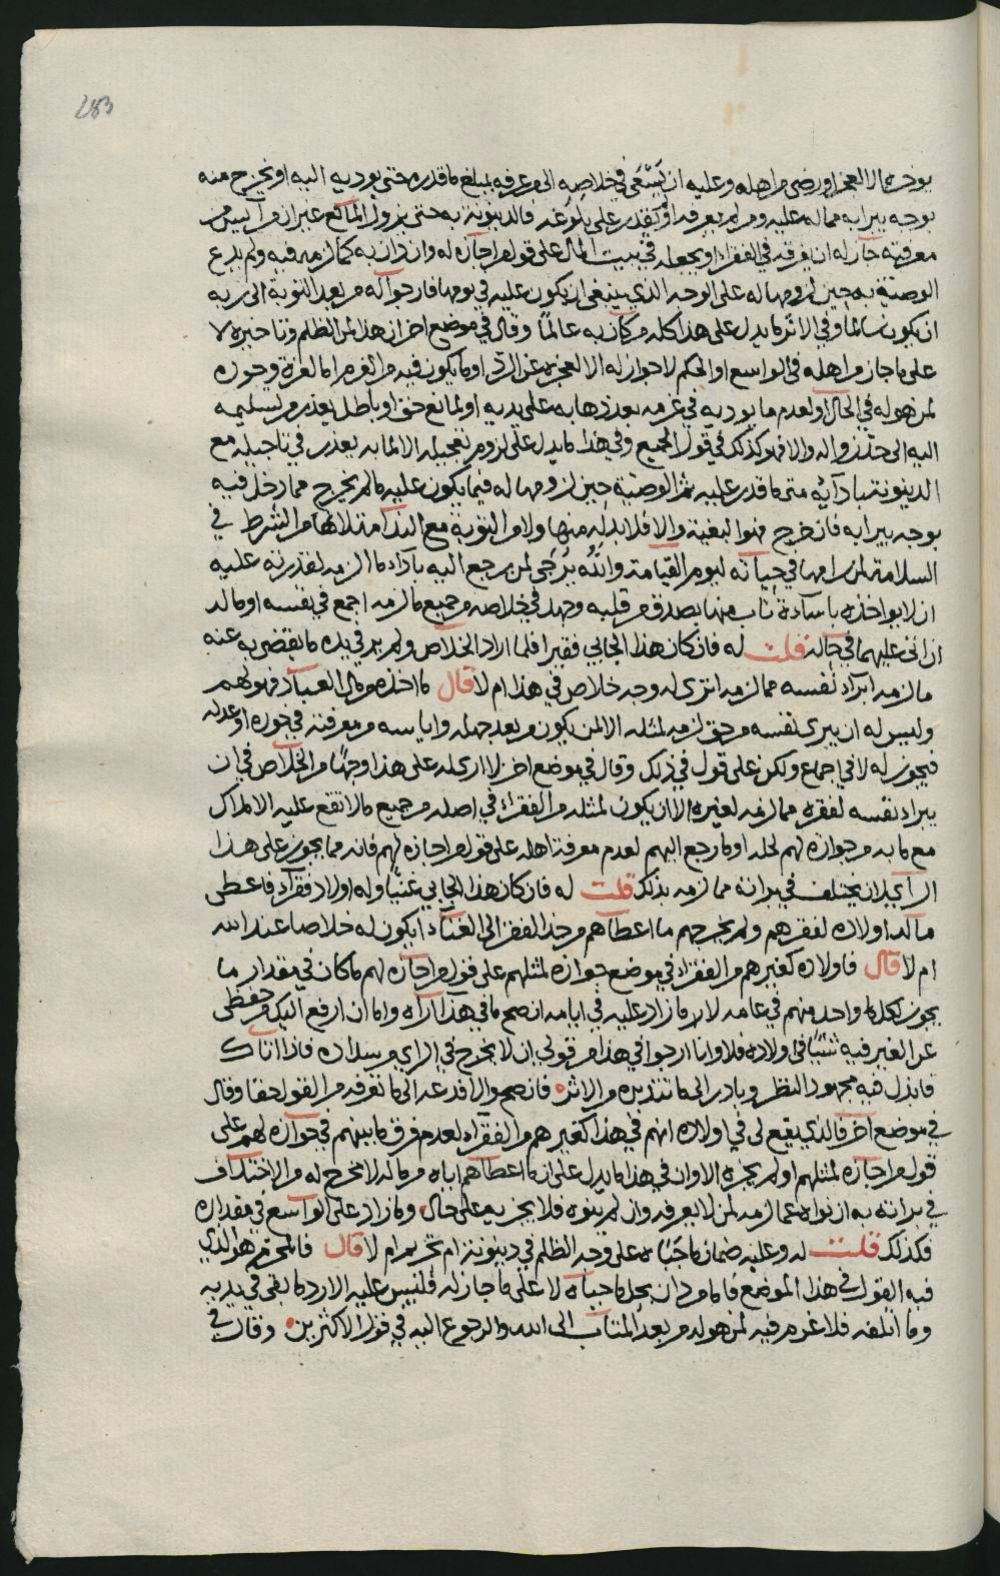 283
يؤخره الا لعجز او رضى من اهله وعليه ان يسعى في خلاصه الى من عرفه بمبلغ ما قدر متى يوديه اليه او يخرج منه
بوجه يبرا به مما له عليه ومن لم يعرفه او لم يقدر على بلوغه فالدينونة به حتى يزول المانع غير ان من آيس من
معرفته جاز له ان يفرقه في الفقراء او يجعله في بيت المال على قول من اجازه له وان دان به كما لزمه فيه ولم يدع
الوصية به حين لزومها له على الوجه الذي ينبغي ان يكون عليه في يومها فارجو له من بعد التوبة الى ربه
ان يكون سالما وفي الاثر ما يدل على هذا كله من كان به عالما وقال في موضع اخر ان هذا من الظلم وتاخيره لا
على ما جاز من اهله في الواسع او الحكم لا جواز له الا لعجزه عن الرد او ما يكون فيه من الغرم اما لعزة وجوده
لمن هو له في الحال او لعدم ما يوديه في غرمه بعد ذهابه على يديه او لمانع حق او باطل يعذر من تسليمه
اليه الى حد زواله والا فهو كذلك في قول الجميع وفي هذا ما يدل على لزوم تعجيله الا لما به يعذر في تاجيله مع
الدينونة بادآئه متى ما قدر عليه ثم الوصية حين لزومها له فيما يكون عليه ما لم يخرج مما دخل فيه
بوجه يبرا به فان خرج فهو البغية والا فلا بد له منها ولا من التوبة مع الندامة لانها من الشرط في
السلامة لمن رامها في حياته ليوم القيامة والله يرجى لمن يرجع اليه باداء ما الزمه لقدرته عليه
ان لا يواخذه باساءة تاب منها بصدق من قلبه وجهد في خلاصه من جميع ما لزمه اجمع في نفسه او ماله
ان اتى عليهما في حاله قلت له فان كان هذا الجابي فقيرا فلما اراد الخلاص ولم ير في يده ما يقضي به عنه
ما لزمه ابراء نفسه مما لزمه اترى له وجه خلاص في هذا ام لا قال ما اخذه من مال العباد فهو لهم
وليس له ان يبري نفسه من حق لزمه لمثله الا لمن يكون من بعد جهله واياسه من معرفته في جوره او عدله
فيجوز له لا في اجماع ولكن على قول في ذلك وقال في موضع اخر لا ارى له على هذا وجها من الخلاص في ان
يبراء نفسه لفقره مما لزمه لغيره الا ان يكون لمثله من الفقراء في اصله من جميع ما لا تقع عليه الاملاك
مع ما به من جوازه لهم لحله او ما رجع اليهم لعدم معرفة اهله على قول من اجازه لهم فانه مما يجوز على هذا
الرآي لان يختلف في برانه مما لزمه بذلك قلت له فان كان هذا الجابي غنيا وله اولاد فقراء فاعطى
ماله اولاده لفقرهم ولم يخرجهم ما اعطاهم من حد الفقر الى الغناء ايكون له خلاصا عند الله
ام لا قال فاولاده كغيرهم من الفقراء في موضع جوازه لمثلهم على قول من اجازه لهم ما كان في مقدار ما
يجوز لكل واحد منهم في عامه لا ما زاد عليه في ايامه ان صح ما في هذا اراه واما ان ارفع اليك من حفظي
عن الغير فيه شيئا في اولاده فلا وانا ارجو في هذا من قولي ان لا يخرج في الراي من سداده فاذا اتاك
فابذل فيه مجهود النظر وبادر الى ما تتذيره من الاثره فان صح والا فدعه الى ما تعرفه من القول حقا وقال
في موضع اخر فالذي يقع لي في اولاده انهم في هذا كغيرهم من الفقراء لعدم فرق ما بينهم في جوازه لهم على
قول من اجازه لمثلهم او لم يجزه الا وان في هذا ما يدل على ان ما اعطاهم اياه من ماله لا مخرج له من الاختلاف
في برانه به ان نواه عما لزمه لمن لا يعرفه وان لم ينوه فلا يجزيه على حال وما زاد على الواسع في مقداره
فكذلك قلت له وعليه ضمان ما جباه على وجه الظلم في دينونة ام تحريم ام لا قال فالمحرم هو الذي
فيه القول في هذا الموضع فاما من دان بحل ما جباه لا على ما جاز له فليس عليه الا رد ما بقي في يديه
وما اتلفه فلا غرم فيه لمن هو له من بعد المتاب الى الله والرجوع اليه في قول الاكثرين وقال في